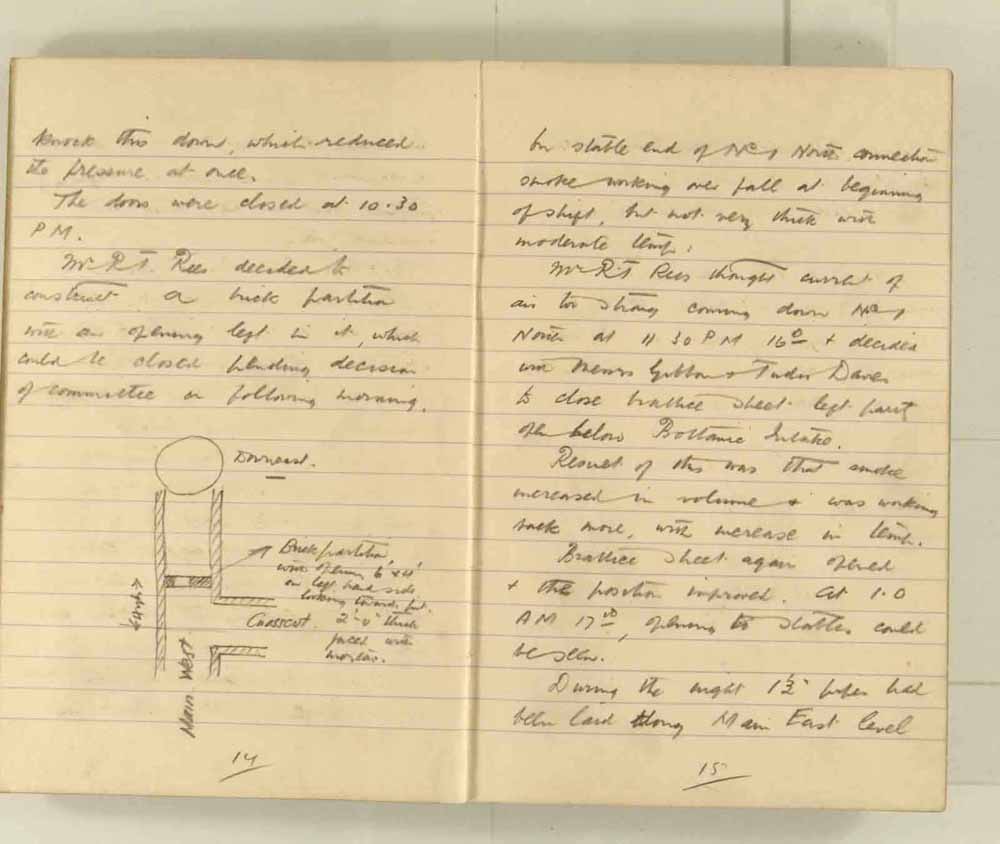 knock this down, which reduced
the pressure at once.
The doors were closed at 10.30
P M.
Mr R.T. Rees decided to
construct a brick partition
with an opening left in it, which
could be closed pending decision
of committee on following morning.
Downcast.
Brick partition,
with opening 6' x 4'
on left hand side
looking towards pit.
2'-0" thick
faced with
mortar.
Crosscut.
Main West
14
In stable end of No 1 North connection
smoke working over fall at beginning
of shift, but not very thick with
moderate temp.
Mr R T Rees thought current of
air too strong coming down No 1
North at 11 30 P M 16th & decided
with Messrs Gibbon & Tudor Davies
to close brattice sheet left part
open below Bottanic Intake.
Result of this was that smoke
increased in volume & was working
back more, with increase in temp.
Brattice sheet again opened
& the position improved. At 1.0
A M 17th, opening to stables could
be seen.
During the night 1½" pipes had
been laid along Main East level
15